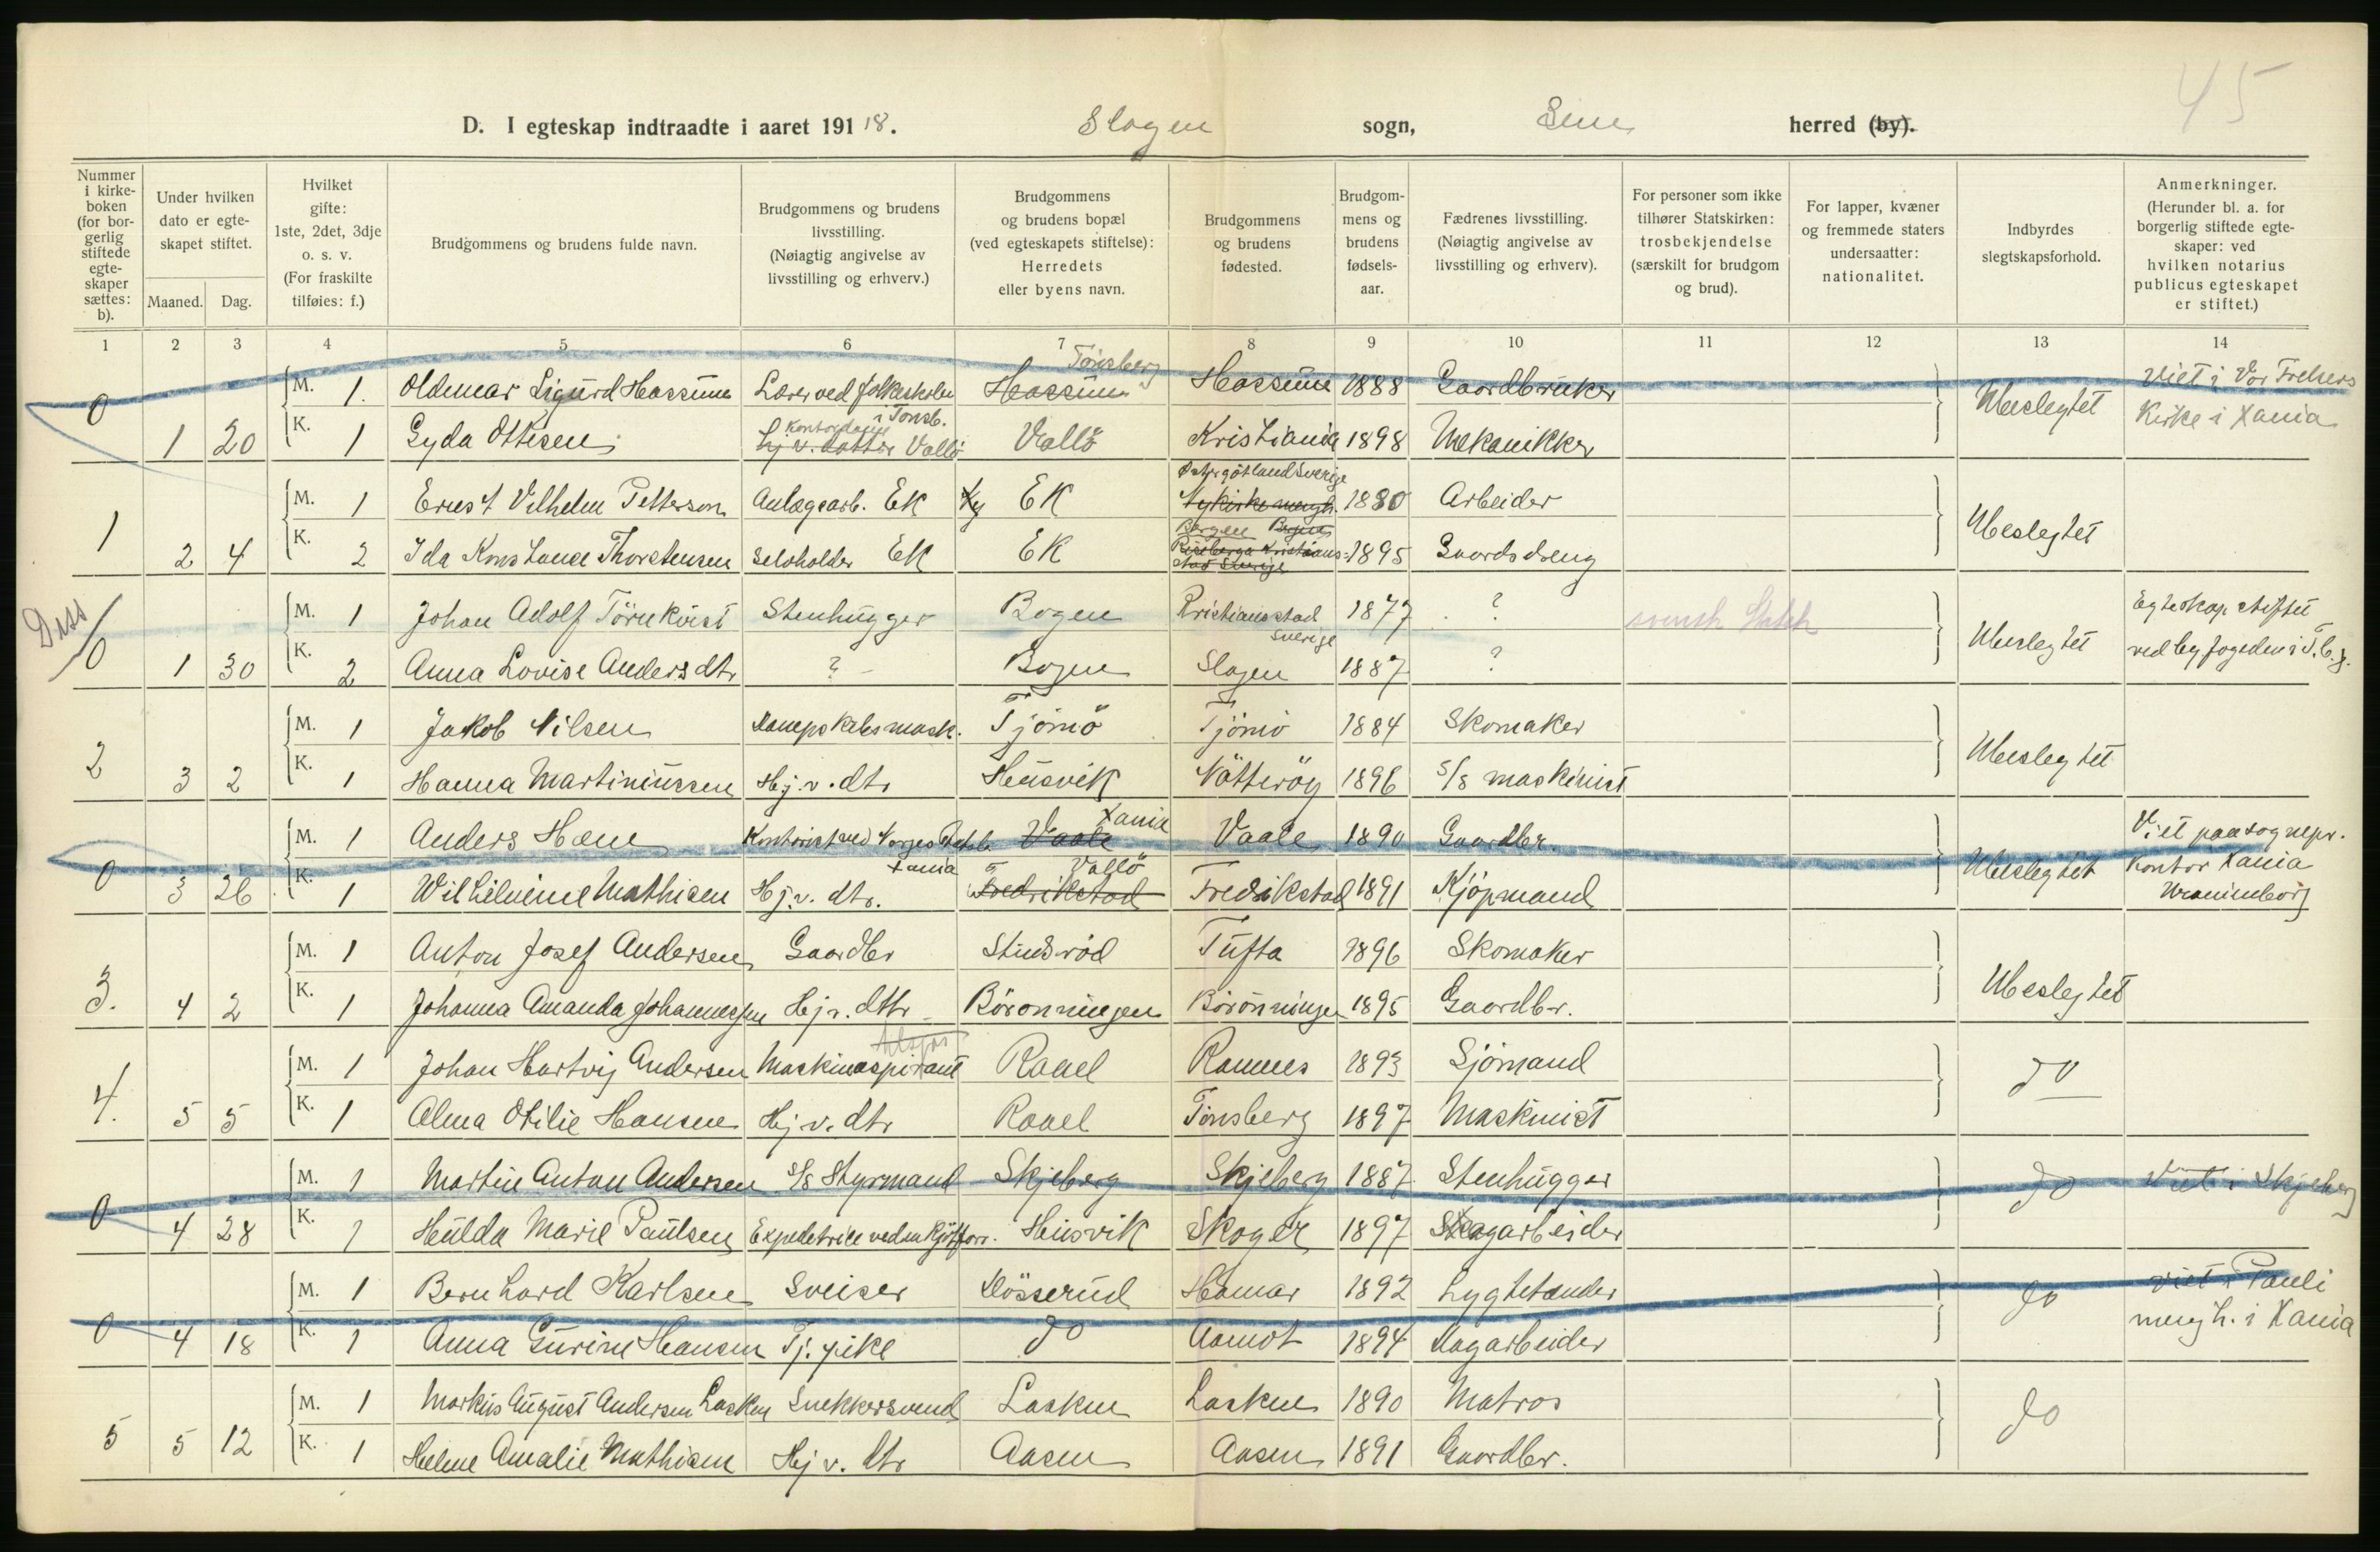 45
D. I egteskap indtraadte i aaret 1918. Slagen sogn, Sem herred (by).
Nummer i kirkeboken (for borgerlig stiftede egteskaper sættes: b).
Under hvilken dato er egteskapet stiftet.
Maaned. Dag.
Hvilket gifte: 1ste, 2det, 3dje o. s. v. (For fraskilte tilføies: f.)
Brudgommens og brudens fulde navn.
Brudgommens og brudens livsstilling. (Nøiagtig angivelse av livsstilling og erhverv.)
Brudgommens og brudens bopæl (ved egteskapets stiftelse): Herredets eller byens navn.
Brudgommens og brudens fødested.
Brudgommens og brudens fødselsaar.
Fædrenes livsstilling. (Nøiagtig angivelse av livsstilling og erhverv).
For personer som ikke tilhører Statskirken: trosbekjendelse (særskilt for brudgom og brud).
For lapper, kvæner og fremmede staters undersaatter: nationalitet.
Indbyrdes slegtskapsforhold.
Anmerkninger. (Herunder bl. a. for borgerlig stiftede egteskaper: ved hvilken notarius publicus egteskapet er stiftet.)
1 2 3 4 5 6 7 8 9 10 11 12 13 14
0 M. 1. Oldemar Sigurd Hassum Lærer ved folkeskolen i Tönsb. Hassum Tönsberg Hassum 1888 Gaardbruker Ubeslegtet Viet i Vor Frelsers
1 20 K. 1 Gyda Ottesen Hj. v. datter Kontordame Vallö Vallö Kristiania 1898 Mekanikker Kirke i Xania
1 M. 1 Ernst Vilhelm Petterson Anlægsarb. Ek Ek Østergötland Sverige Nykirke mengh. 1880 Arbeider Ubeslegtet
2 4 K. 2 Ida Konstanse Thorstensen Selvholder Ek Ek Bergen Riseberga Kristianstad Sverige 1895 Gaardsdreng
Diss
0 M. 1 Johan Adolf Törnkvist Stenhugger Bogen Kristianstad Sverige 1877 ? svensk Statsk Ubeslegtet Egteskap stiftet
1 30 K. 2 Anna Lovise Andersdtr ? Bogen Slagen 1887 ? ved byfogeden i T.b.g.
2 M. 1 Jakob Nilsen Dampskibsmask. Tjömö Tjömö 1884 Skomaker Ubeslegtet
3 2 K. 1 Hanna Martiniussen Hj. v. dtr Husvik Nötteröy 1896 S/S maskinist
0 M. 1 Anders Hæm Kontorist ved Norges Xania Vaale Xania Vaale 1890 Gaardbr. Ubeslegtet Viet paa sognepr.
3 26 K. 1 Wilhelmine Mathisen Hj. v. dtr. Fredrikstad Vallö Fredrikstad 1891 Kjöpmand kontor Xania Uranienborg
3. M. 1 Anton Josef Andersen Gaardbr Stubröd Tufta 1896 Skomaker Ubeslegtet
4 2 K. 1 Johanna Amanda Johannessen Hj v. dtr Böronningen Böronningen 1895 Gaardbr.
4. M. 1 Johan Hartvig Andersen Maskinaspirant Raael Ramnes 1893 Sjömand do
5 5 K. 1 Alma Otilie Hansen Hj v. dtr Raael Tönsberg 1897 Maskinist
0 M. 1 Martin Anton Andersen S/S Styrmand Skjeberg Skjeberg 1887 Stenhugger do Viet i Skjeberg
4 28 K. 1 Hulda Marie Paulsen Expeditrice ved en kjöttforr. Husvik Skoger 1897 Skogarbeider
0 M. 1 Bernhard Karlsen Sveiser Hamar 1892 Lygtetænder do viet i Pauli
4 18 K. 1 Anna Gurine Hansen Tj. pike do Aamot 1894 Dagarbeider mengh. i Xania
5 M. 1 Markus August Andersen Lasken Snekkersvend Lasken Lasken 1890 Matros do
5 12 K. 1 Helene Amalie Mathisen Hj v. dtr Aasen Aasen 1891 Gaardbr.